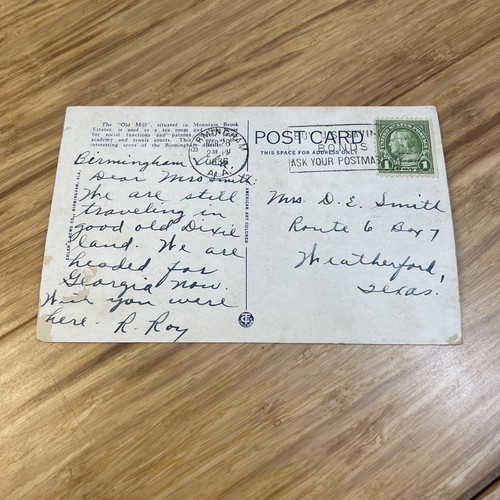 The "Old Mill", situated in Mountain Brook
Estates, is used as a tea room and
for social functions and patrons
academy and tennis courts. This
interesting spots of the Birmingham district.
BIRMINGHAM
1936
ALA.
BONDS
ASK YOUR POSTMA
UNITED STATES POSTAGE
1 1
POST CARD
THIS SPACE FOR ADDRESS ONLY
Birmingham Ala.
Dear Mrs. Smith:
We are still
traveling in
good old Dixie
land. We are
headed for
Georgia now.
Wish you were
here. R. Roy
Mrs. D. E. Smith
Route 6 Box 7
Weatherford,
Texas.
BIRMINGHAM, ALA.
AMERICAN ART COLORED